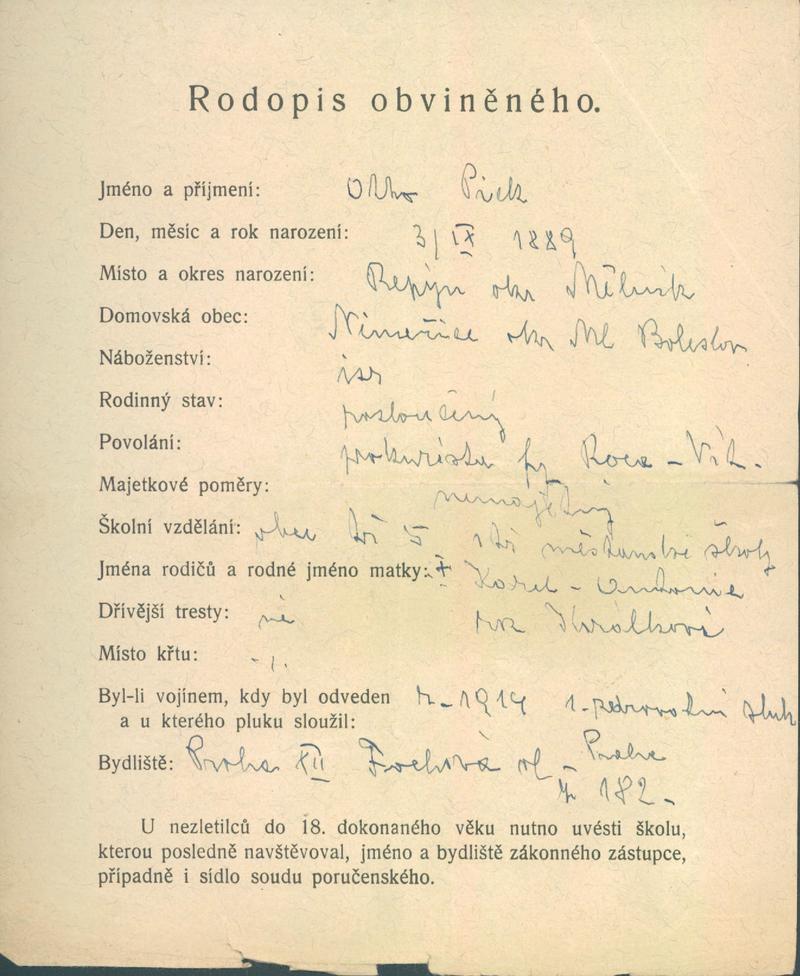 Rodopis obviněného.
Jméno a příjmení: Otto Pick
Den, měsíc a rok narození: 3/IX 1889
Místo a okres narození: Řepín okr Mělník
Domovská obec: Niměřice okr Ml Boleslav
Náboženství: isr
Rodinný stav:
Povolání: prokurista fy
Majetkové poměry: nemajetný
Školní vzdělání: obec 5 měšťanské školy
Jména rodičů a rodné jméno matky: + Karel - Antonie
Dřívější tresty: ne
Místo křtu: -
Byl-li vojínem, kdy byl odveden r. 1914
a u kterého pluku sloužil:
Bydliště: Praha XII Fochova ul - Praha
182.
U nezletilců do 18. dokonaného věku nutno uvésti školu,
kterou posledně navštěvoval, jméno a bydliště zákonného zástupce,
případně i sídlo soudu poručenského.